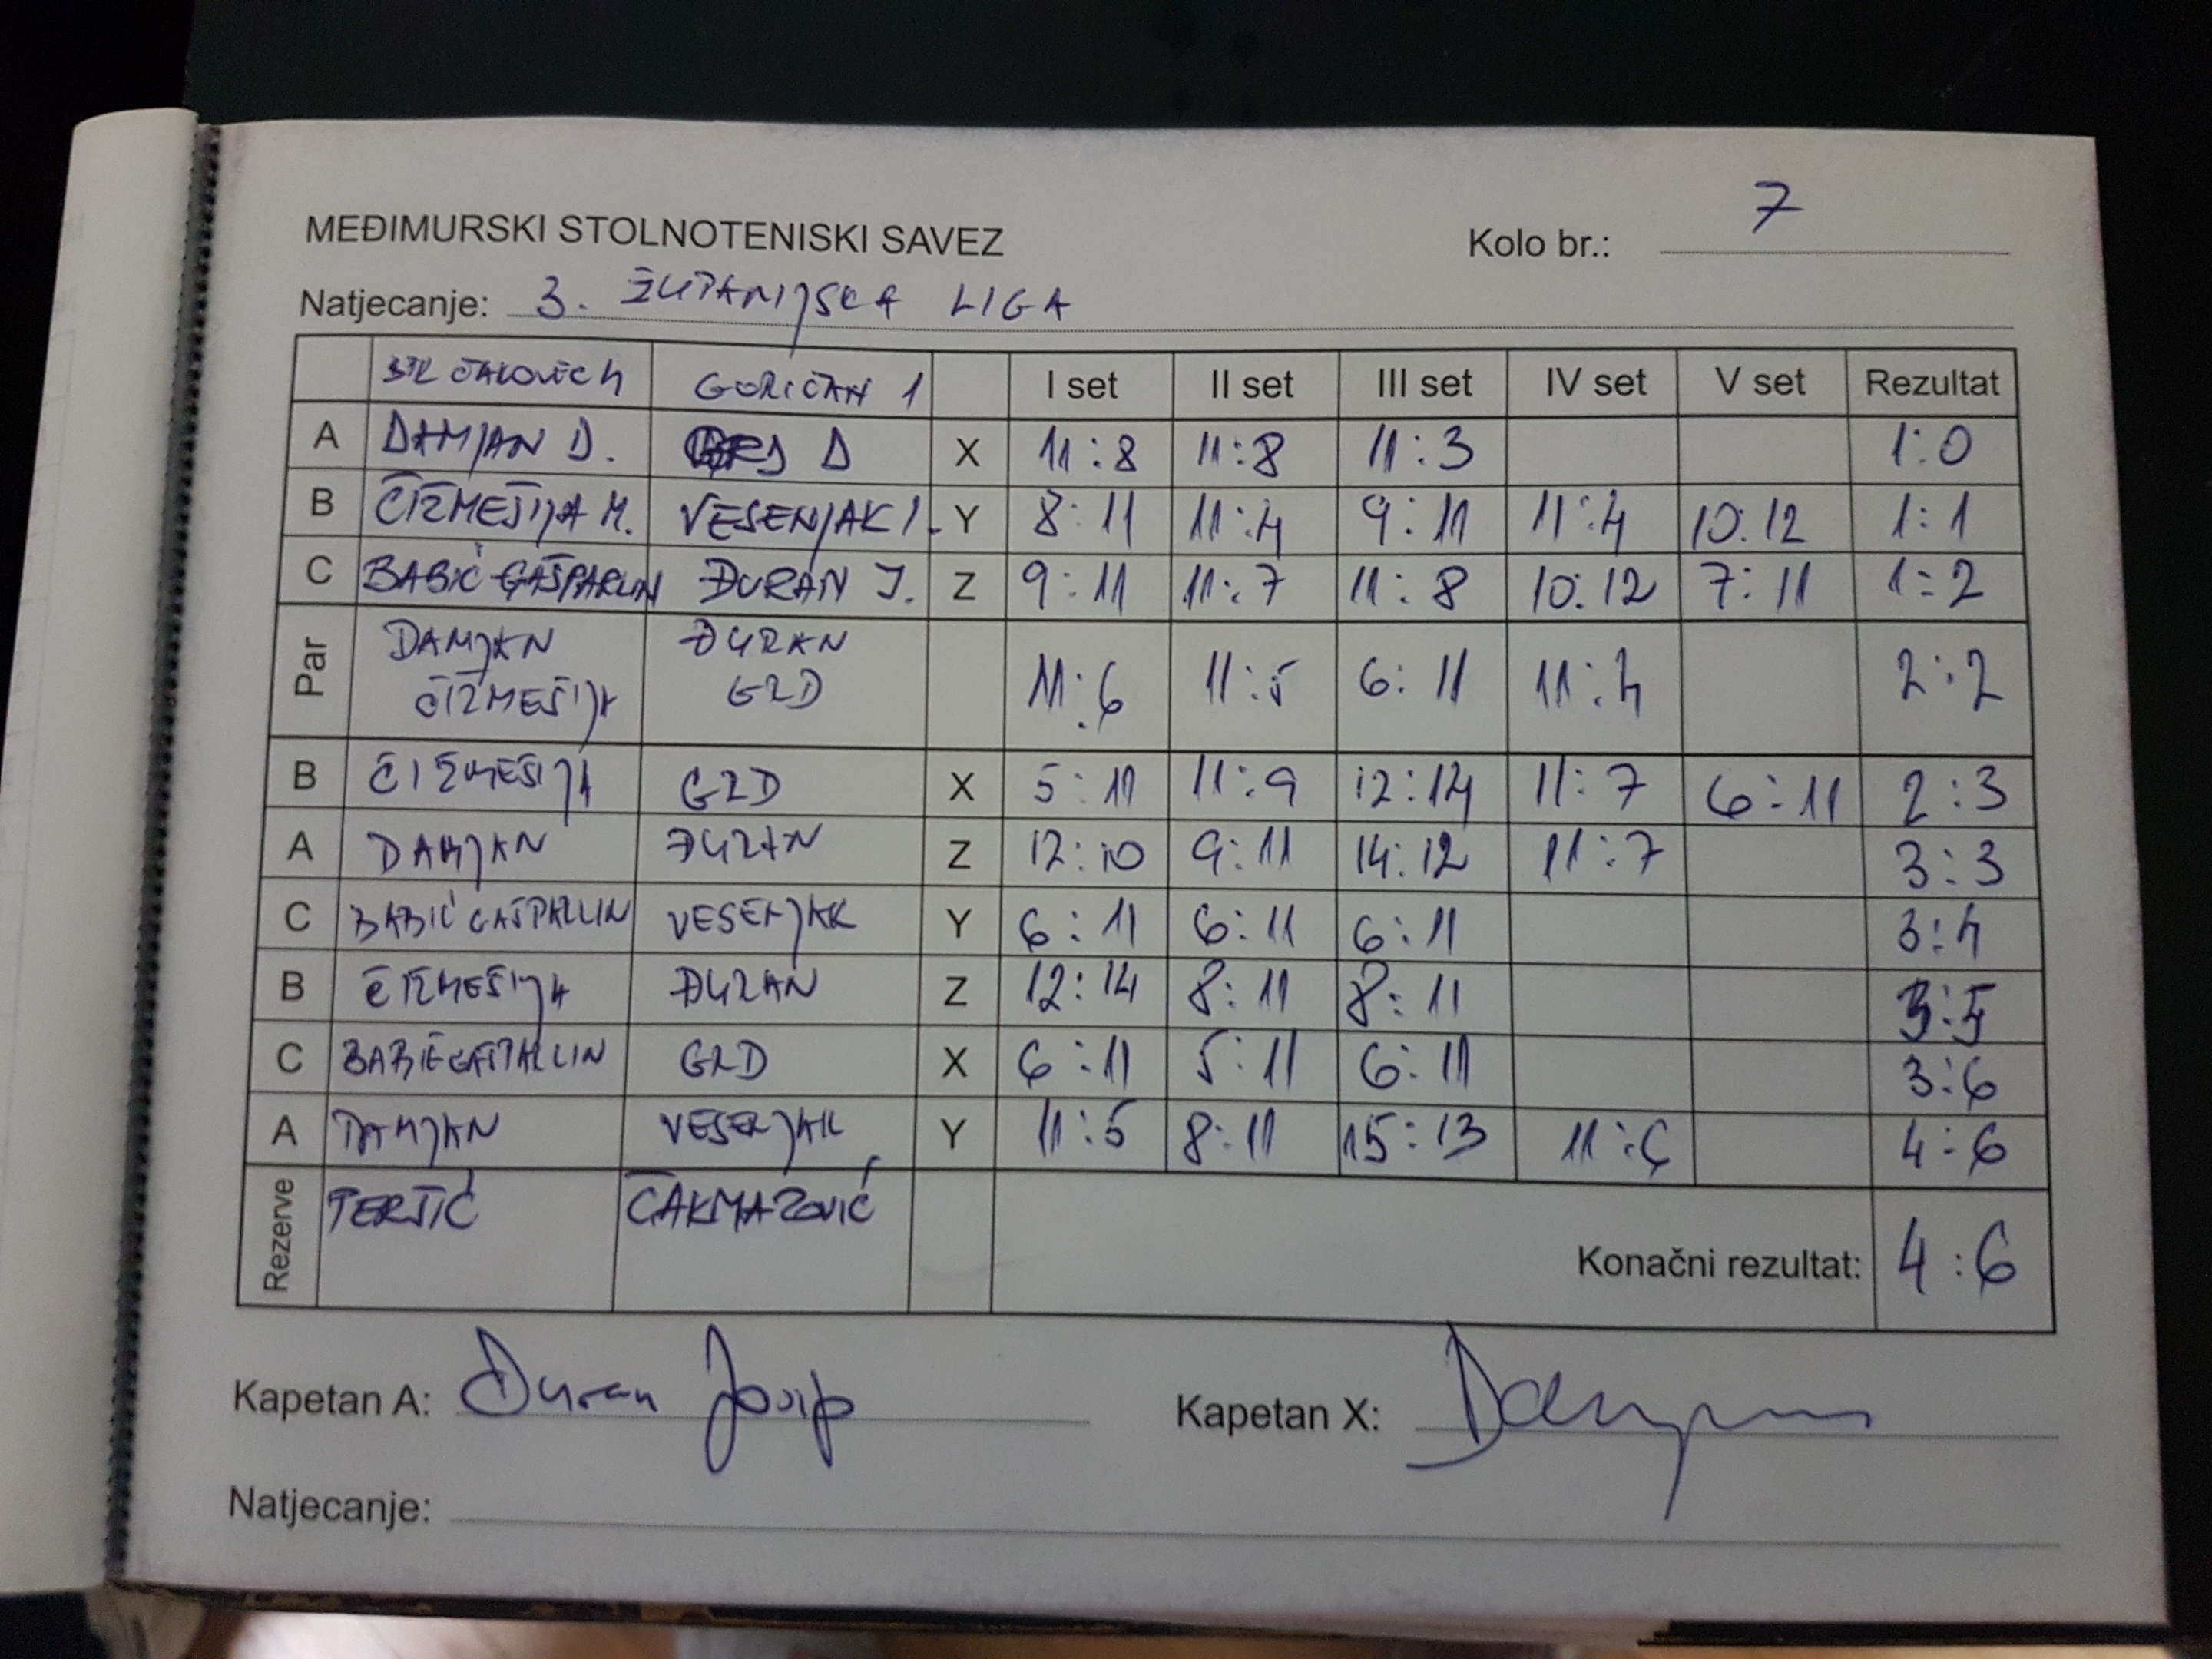 MEĐIMURSKI STOLNOTENISKI SAVEZ Kolo br.: 7
Natjecanje: 3. ŽUPANIJSKA LIGA
STK ČAKOVEC 4 GORIČAN 1 I set II set III set IV set V set Rezultat
A DAMJAN D. GRD D X 11:8 11:8 11:3 1:0
B ČIZMEŠIJA M. VESENJAK I. Y 8:11 11:4 9:11 11:4 10:12 1:1
C BABIĆ GAŠPARLIN ĐURAN J. Z 9:11 11:7 11:8 10:12 7:11 1:2
Par DAMJAN ĐURAN
ČIZMEŠIJA GRD 11:6 11:5 6:11 11:4 2:2
B ČIZMEŠIJA GRD X 5:11 11:9 12:14 11:7 6:11 2:3
A DAMJAN ĐURAN Z 12:10 9:11 14:12 11:7 3:3
C BABIĆ GAŠPARLIN VESENJAK Y 6:11 6:11 6:11 3:4
B ČIZMEŠIJA ĐURAN Z 12:14 8:11 8:11 3:5
C BABIĆ GAŠPARLIN GRD X 6:11 5:11 6:11 3:6
A DAMJAN VESENJAK Y 11:5 8:11 15:13 4:6
Rezerve ČAKMAZOVIĆ
Konačni rezultat: 4:6
Kapetan A: Đuran Josip Kapetan X: Damjan
Natjecanje: